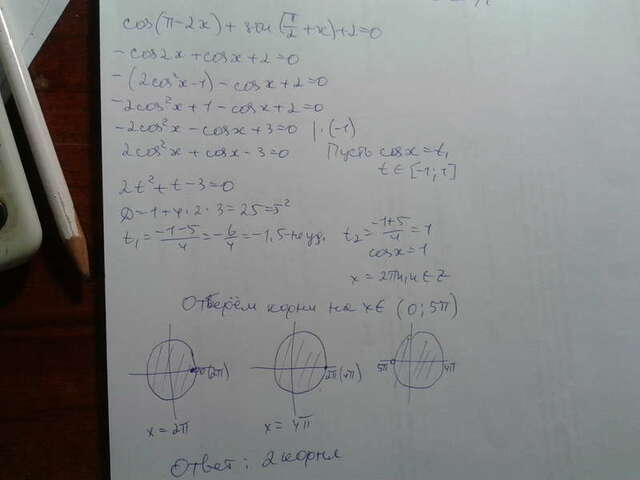 cos(π-2x) + sin(π/2 + x) + 2 = 0
-cos2x + cosx + 2 = 0
-(2cos²x - 1) - cosx + 2 = 0
-2cos²x + 1 - cosx + 2 = 0
-2cos²x - cosx + 3 = 0 | ·(-1)
2cos²x + cosx - 3 = 0 Пусть cosx = t,
t ∈ [-1; 1]
2t² + t - 3 = 0
D = 1 + 4·2·3 = 25 = 5²
t₁ = (-1-5)/4 = -6/4 = -1,5 - не уд. t₂ = (-1+5)/4 = 1
cosx = 1
x = 2πn, n ∈ Z
Отберём корни на x ∈ (0; 5π)
(2π) 2π(4π) 5π 4π
x = 2π x = 4π
Ответ: 2 корня